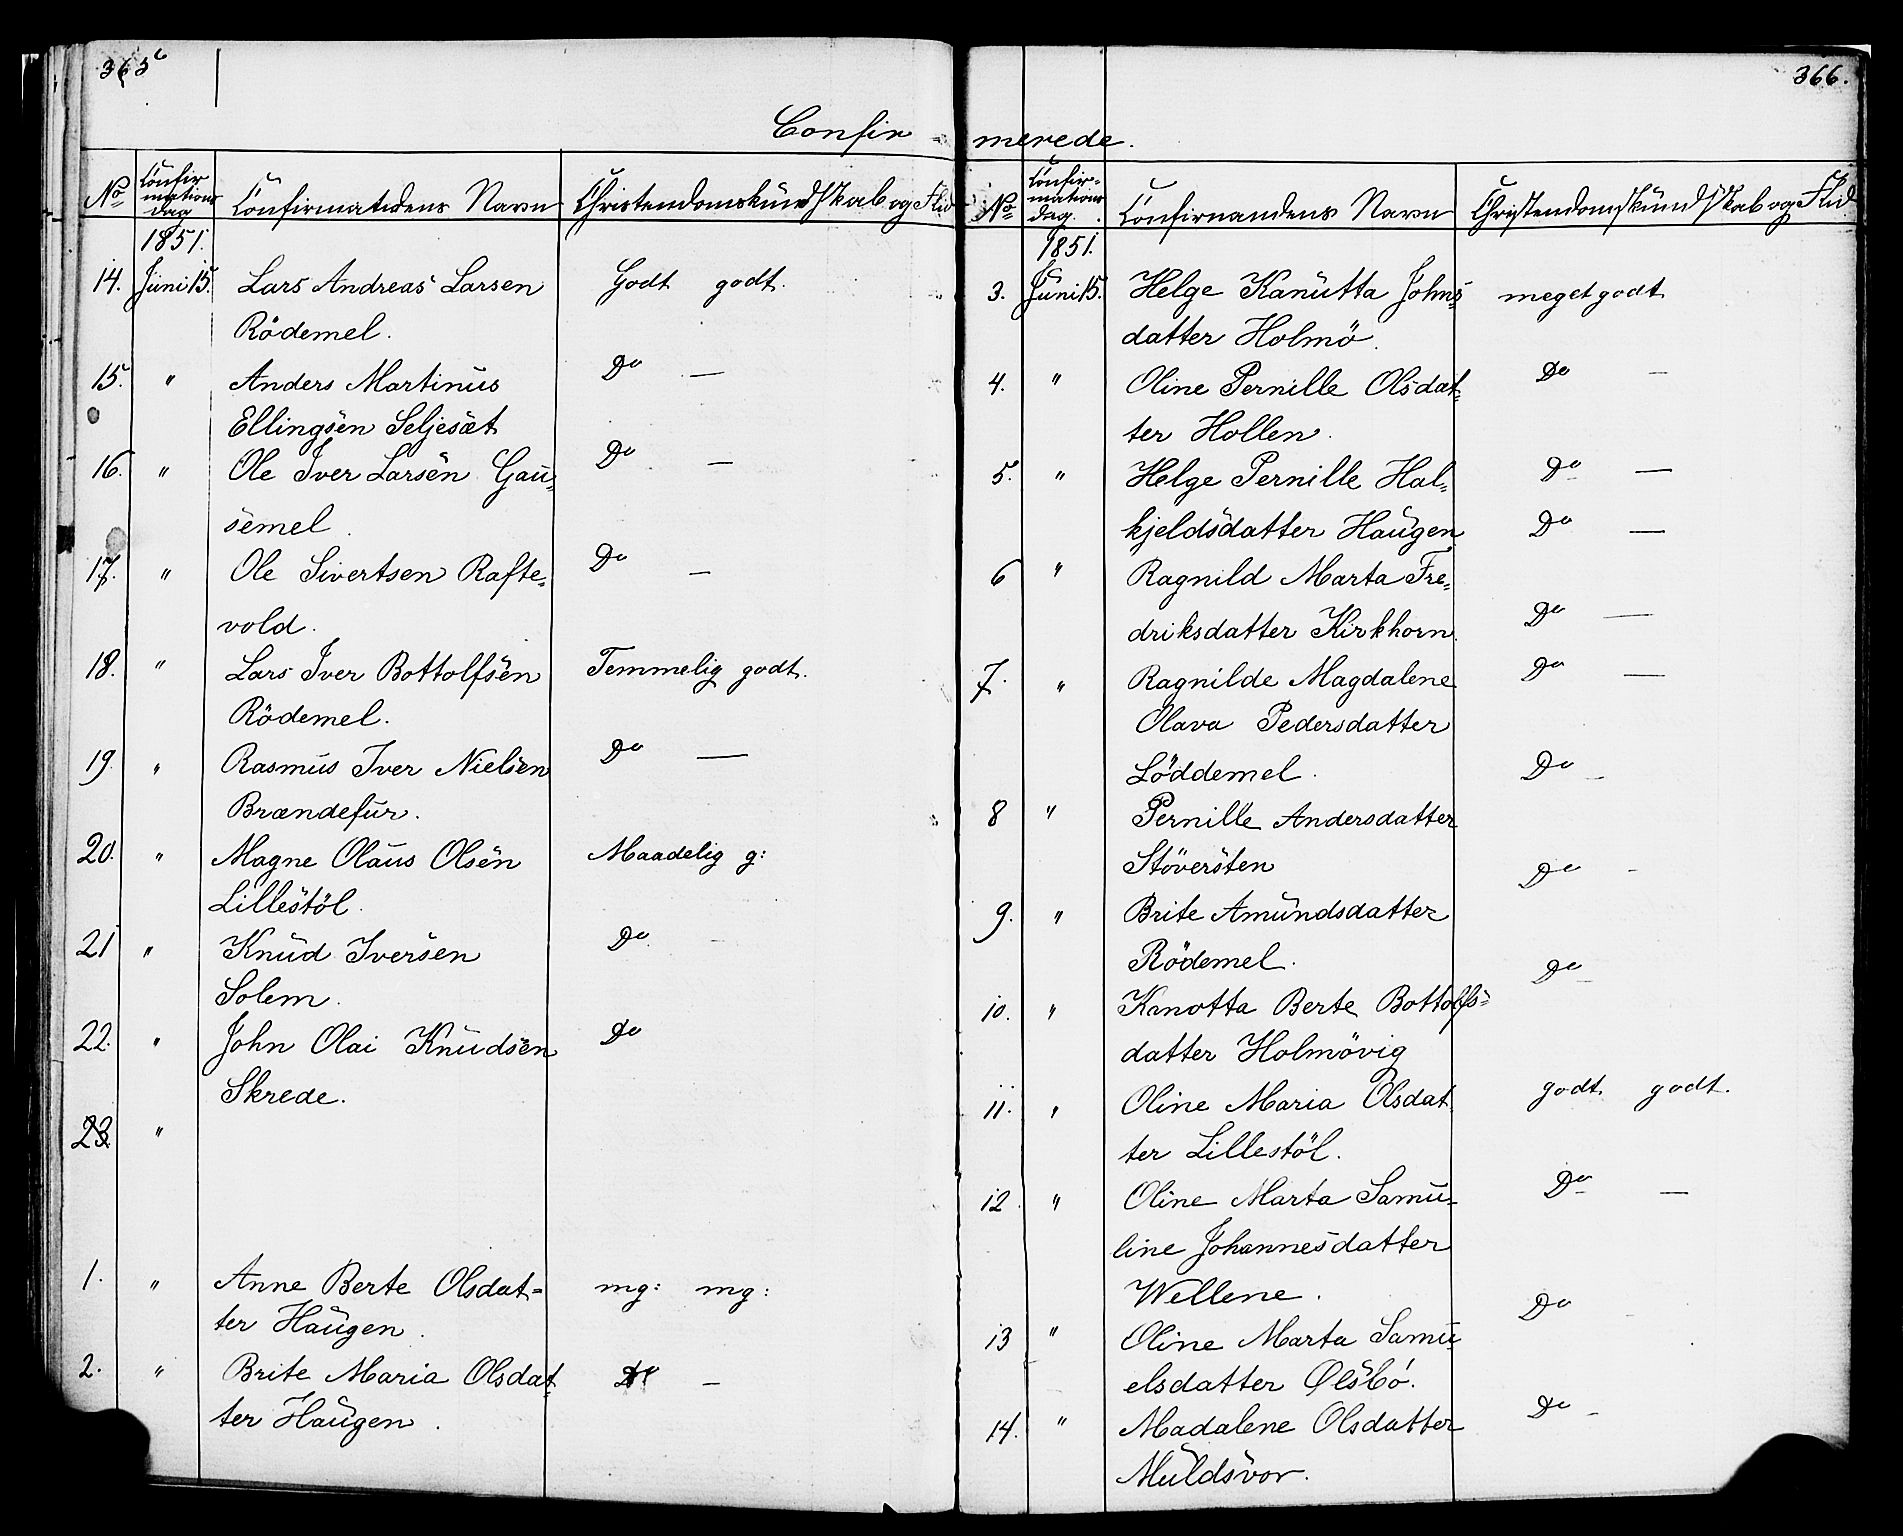 365
Confir-
No Confir mations dag Confirmandens Navn Christendomskündskab og Flid
1851.
14. Juni 15. Lars Andreas Larsen Godt godt.
Rödemel.
15. " Anders Martinus Do —
Ellingsen Seljesæt
16. " Ole Iver Larsen Gau= Do —
semel.
17. " Ole Sivertsen Rafte= Do —
vold.
18. " Lars Iver Bottolfsen Temmelig godt.
Rödemel.
19. " Rasmus Iver Nielsen Do —
Brændefur.
20. " Magne Olaus Olsen Maadelig g:
Lillestöl.
21 " Knud Iversen Do. -
Solem.
22. " John Olai Knudsen Do
Skrede.
23. "
1. " Anne Berte Olsdat= mg: mg:
ter Haugen.
2. " Brite Maria Olsdat= Do —
ter Haugen.
366.
merede.
No Confir= mations dag. Confirnandens Navn Christendomskündskab og Flid
1851.
3. Juni 15. Helge Kanutta Johns= meget godt
datter Holmö.
4. " Oline Pernille Olsdat= Do —
ter Hollen.
5. " Helge Pernille Hal= Do —
kjeldsdatter Haugen Do —
6 " Ragnild Marta Fre=
driksdatter Kirkhorn. Do —
7. " Ragnilde Magdalene Do —
Olava Pedersdatter
Löddemel. Do -
8 " Pernille Andersdatter
Stöversten Do -
9. " Brite Amundsdatter
Rödemel. Do -
10. " Knotta Berte Bottolfs=
datter Holmövig
11. " Oline Maria Olsdat godt. godt.
ter Lillestöl.
12. " Oline Marta Samu= Do —
line Johannesdatter
Wellene. Do -
13 " Oline Marta Samu=
elsdatter Ølsbö.
14. " Madalene Olsdatter Do -
Muldsvor.